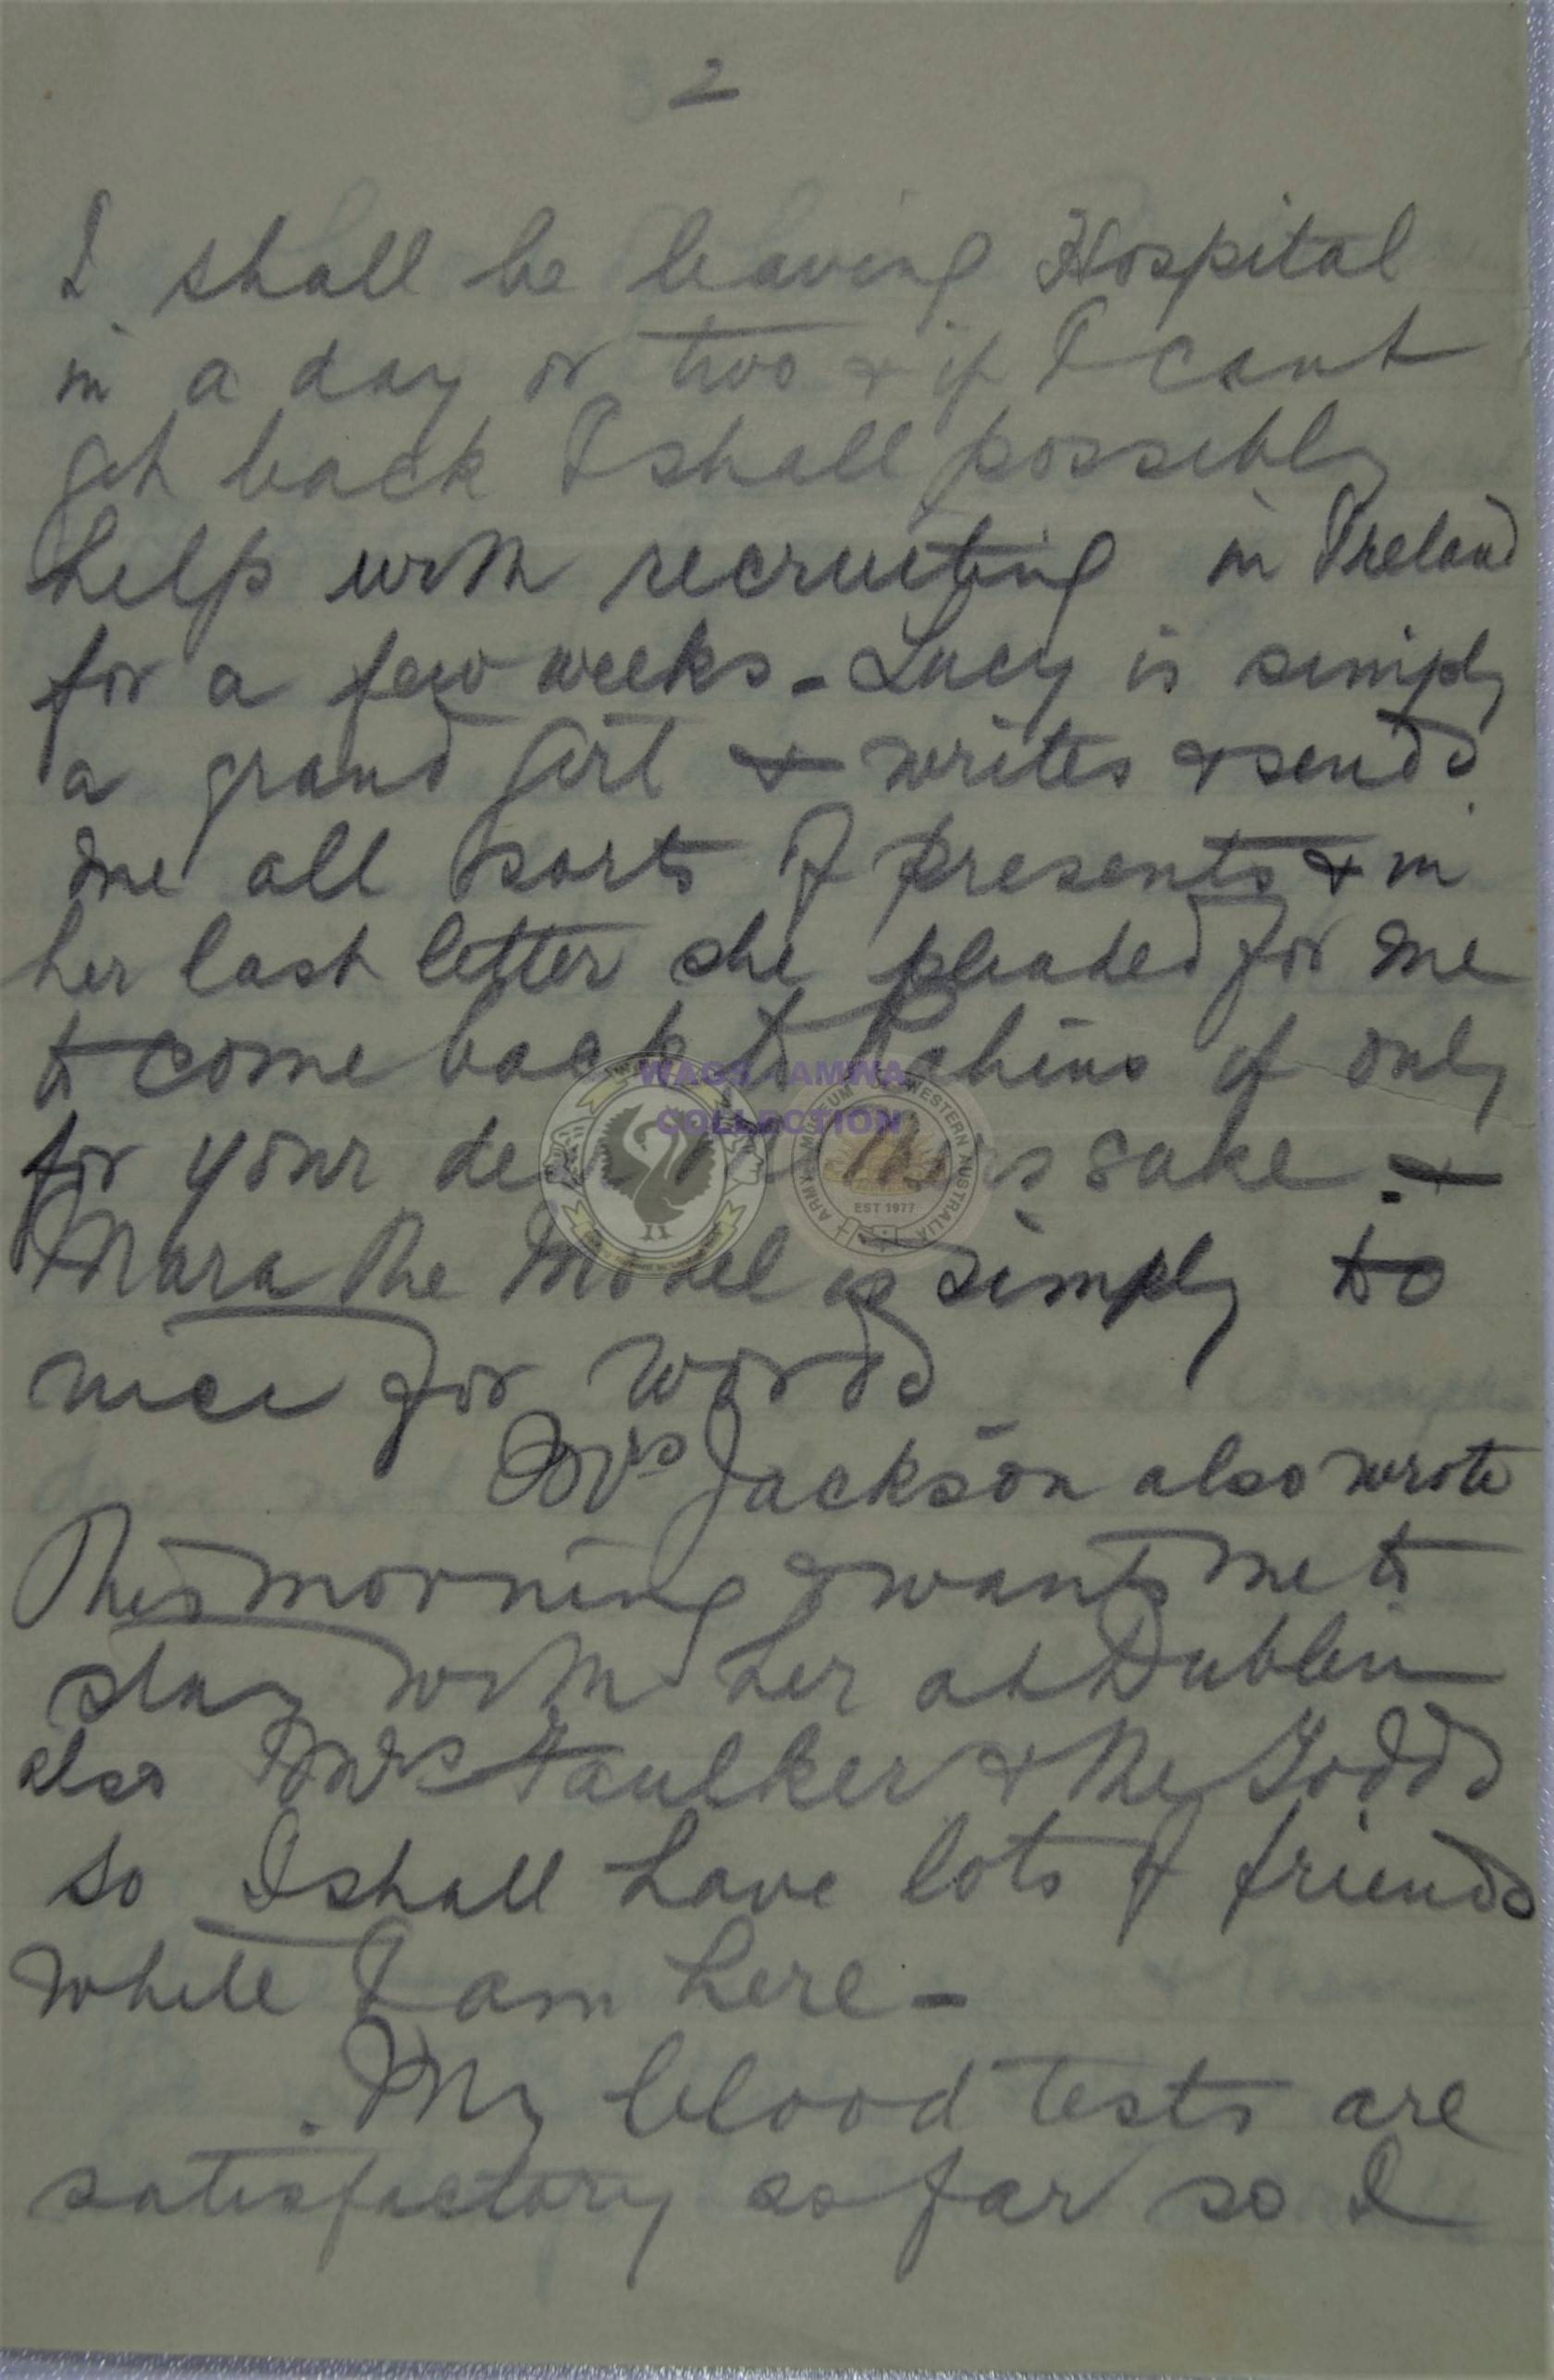 2
I shall be leaving Hospital
in a day or two & if I cant
get back I shall possibly
help with recruiting in Ireland
for a few weeks - Lucy is simply
a grand girl & writes & sends
me all sorts of presents & in
her last letter she pleaded for me
to come back to Rahins if only
WAGS AMWA
COLLECTION
for your dear mothers sake. &
Mara the Model is simply to
nice for words
Mrs Jackson also wrote
this morning & wants me to
stay with her at Dublin
also Mrs Faulker & the Todds
so I shall have lots of friends
while I am here -
My blood tests are
satisfactory so far so I
ARMY MUSEUM WESTERN AUSTRALIA
EST 1977